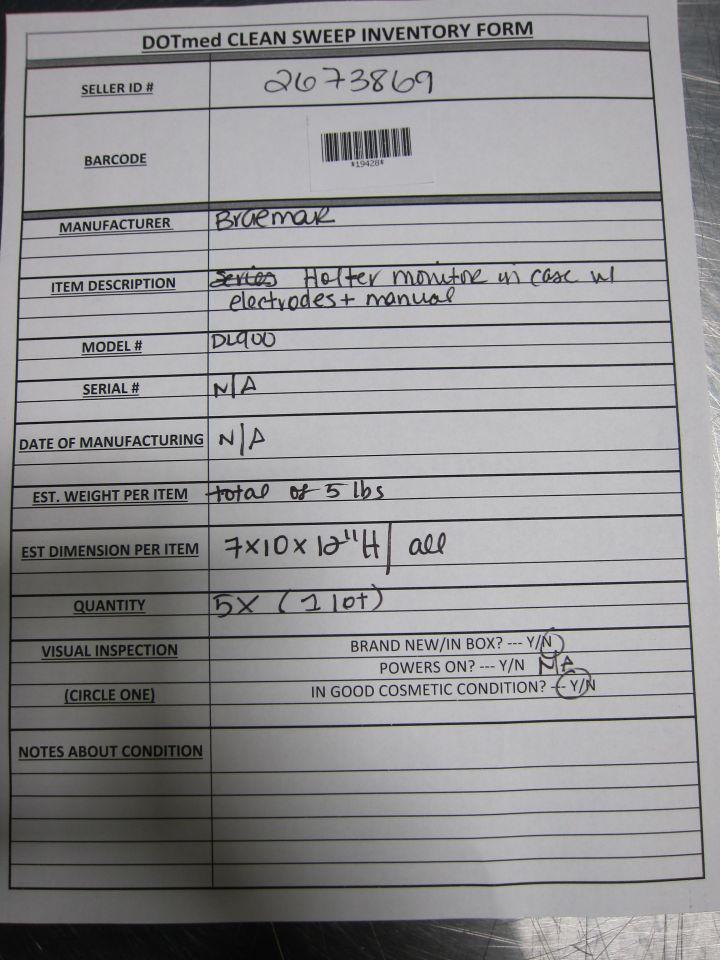 DOTmed CLEAN SWEEP INVENTORY FORM
SELLER ID # 2673869
BARCODE
*19428*
MANUFACTURER Braemar
ITEM DESCRIPTION Series Holter monitor in case w/
electrodes + manual
MODEL # DL900
SERIAL # N/A
DATE OF MANUFACTURING N/A
EST. WEIGHT PER ITEM total of 5 lbs
EST DIMENSION PER ITEM 7x10x12"H / all
QUANTITY 5X (1 lot)
VISUAL INSPECTION BRAND NEW/IN BOX? --- Y/N
POWERS ON? --- Y/N N/A
(CIRCLE ONE) IN GOOD COSMETIC CONDITION? --- Y/N
NOTES ABOUT CONDITION